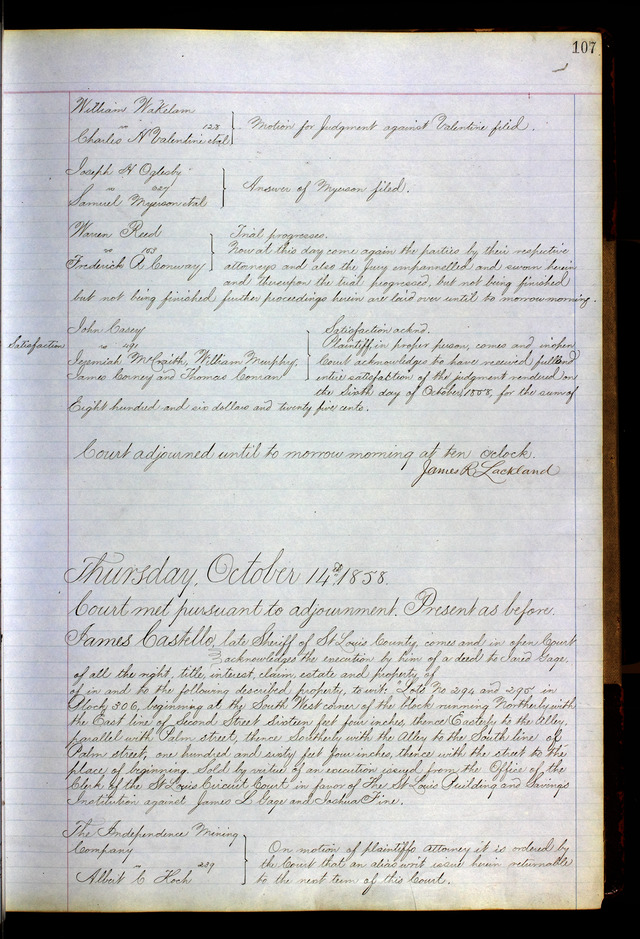 107
William Wakelam
vs 128
Charles N Valentine et al
Motion for Judgment against Valentine filed.
Joseph H Oglesby
vs 227
Samuel Myerson et al
Answer of Myerson filed.
Warren Reed
vs 153
Frederick R Conway
Trial progresses.
Now at this day come again the parties by their respective
attorneys and also the Jury impannelled and sworn herein
and thereupon the trial progressed, but not being finished
but not being finished further proceedings herein are laid over until to morrow morning.
Satisfaction
John Casey
vs 491
Jeremiah McCraith, William Murphy,
James Corney and Thomas Conran
Satisfaction acknd.
Plaintiff in proper person, comes and in open
Court acknowledges to have received full and
entire satisfaction of the judgment rendered on
the Sixth day of October 1858, for the sum of
Eight hundred and six dollars and twenty five cents.
Court adjourned until to morrow morning at ten oclock.
James R. Lackland
Thursday, October 14th 1858.
Court met pursuant to adjournment. Present as before.
James Castello, late Sheriff of St Louis County, comes and in open Court
acknowledges the execution by him of a deed to Jared Gage,
of all the right, title, interest, claim, estate and property of
of in and to the following described property, to wit: Lots No 294 and 295 in
Block 306, beginning at the South West corner of the block running Northerly with
the East line of Second Street Sixteen feet four inches, thence Easterly to the Alley,
parallel with Palm street, thence Southerly with the Alley to the South line of
Palm street, one hundred and sixty feet four inches, thence with the street to the
place of beginning. Sold by virtue of an execution issued from the Office of the
Clerk of the St Louis Circuit Court in favor of The St Louis Building and Savings
Institution against James L Gage and Joshua Fine.
The Independence Mining
Company
vs 239
Albert C Koch
On motion of plaintiffs attorney it is ordered by
the Court that an alias writ issue herein returnable
to the next term of this Court.